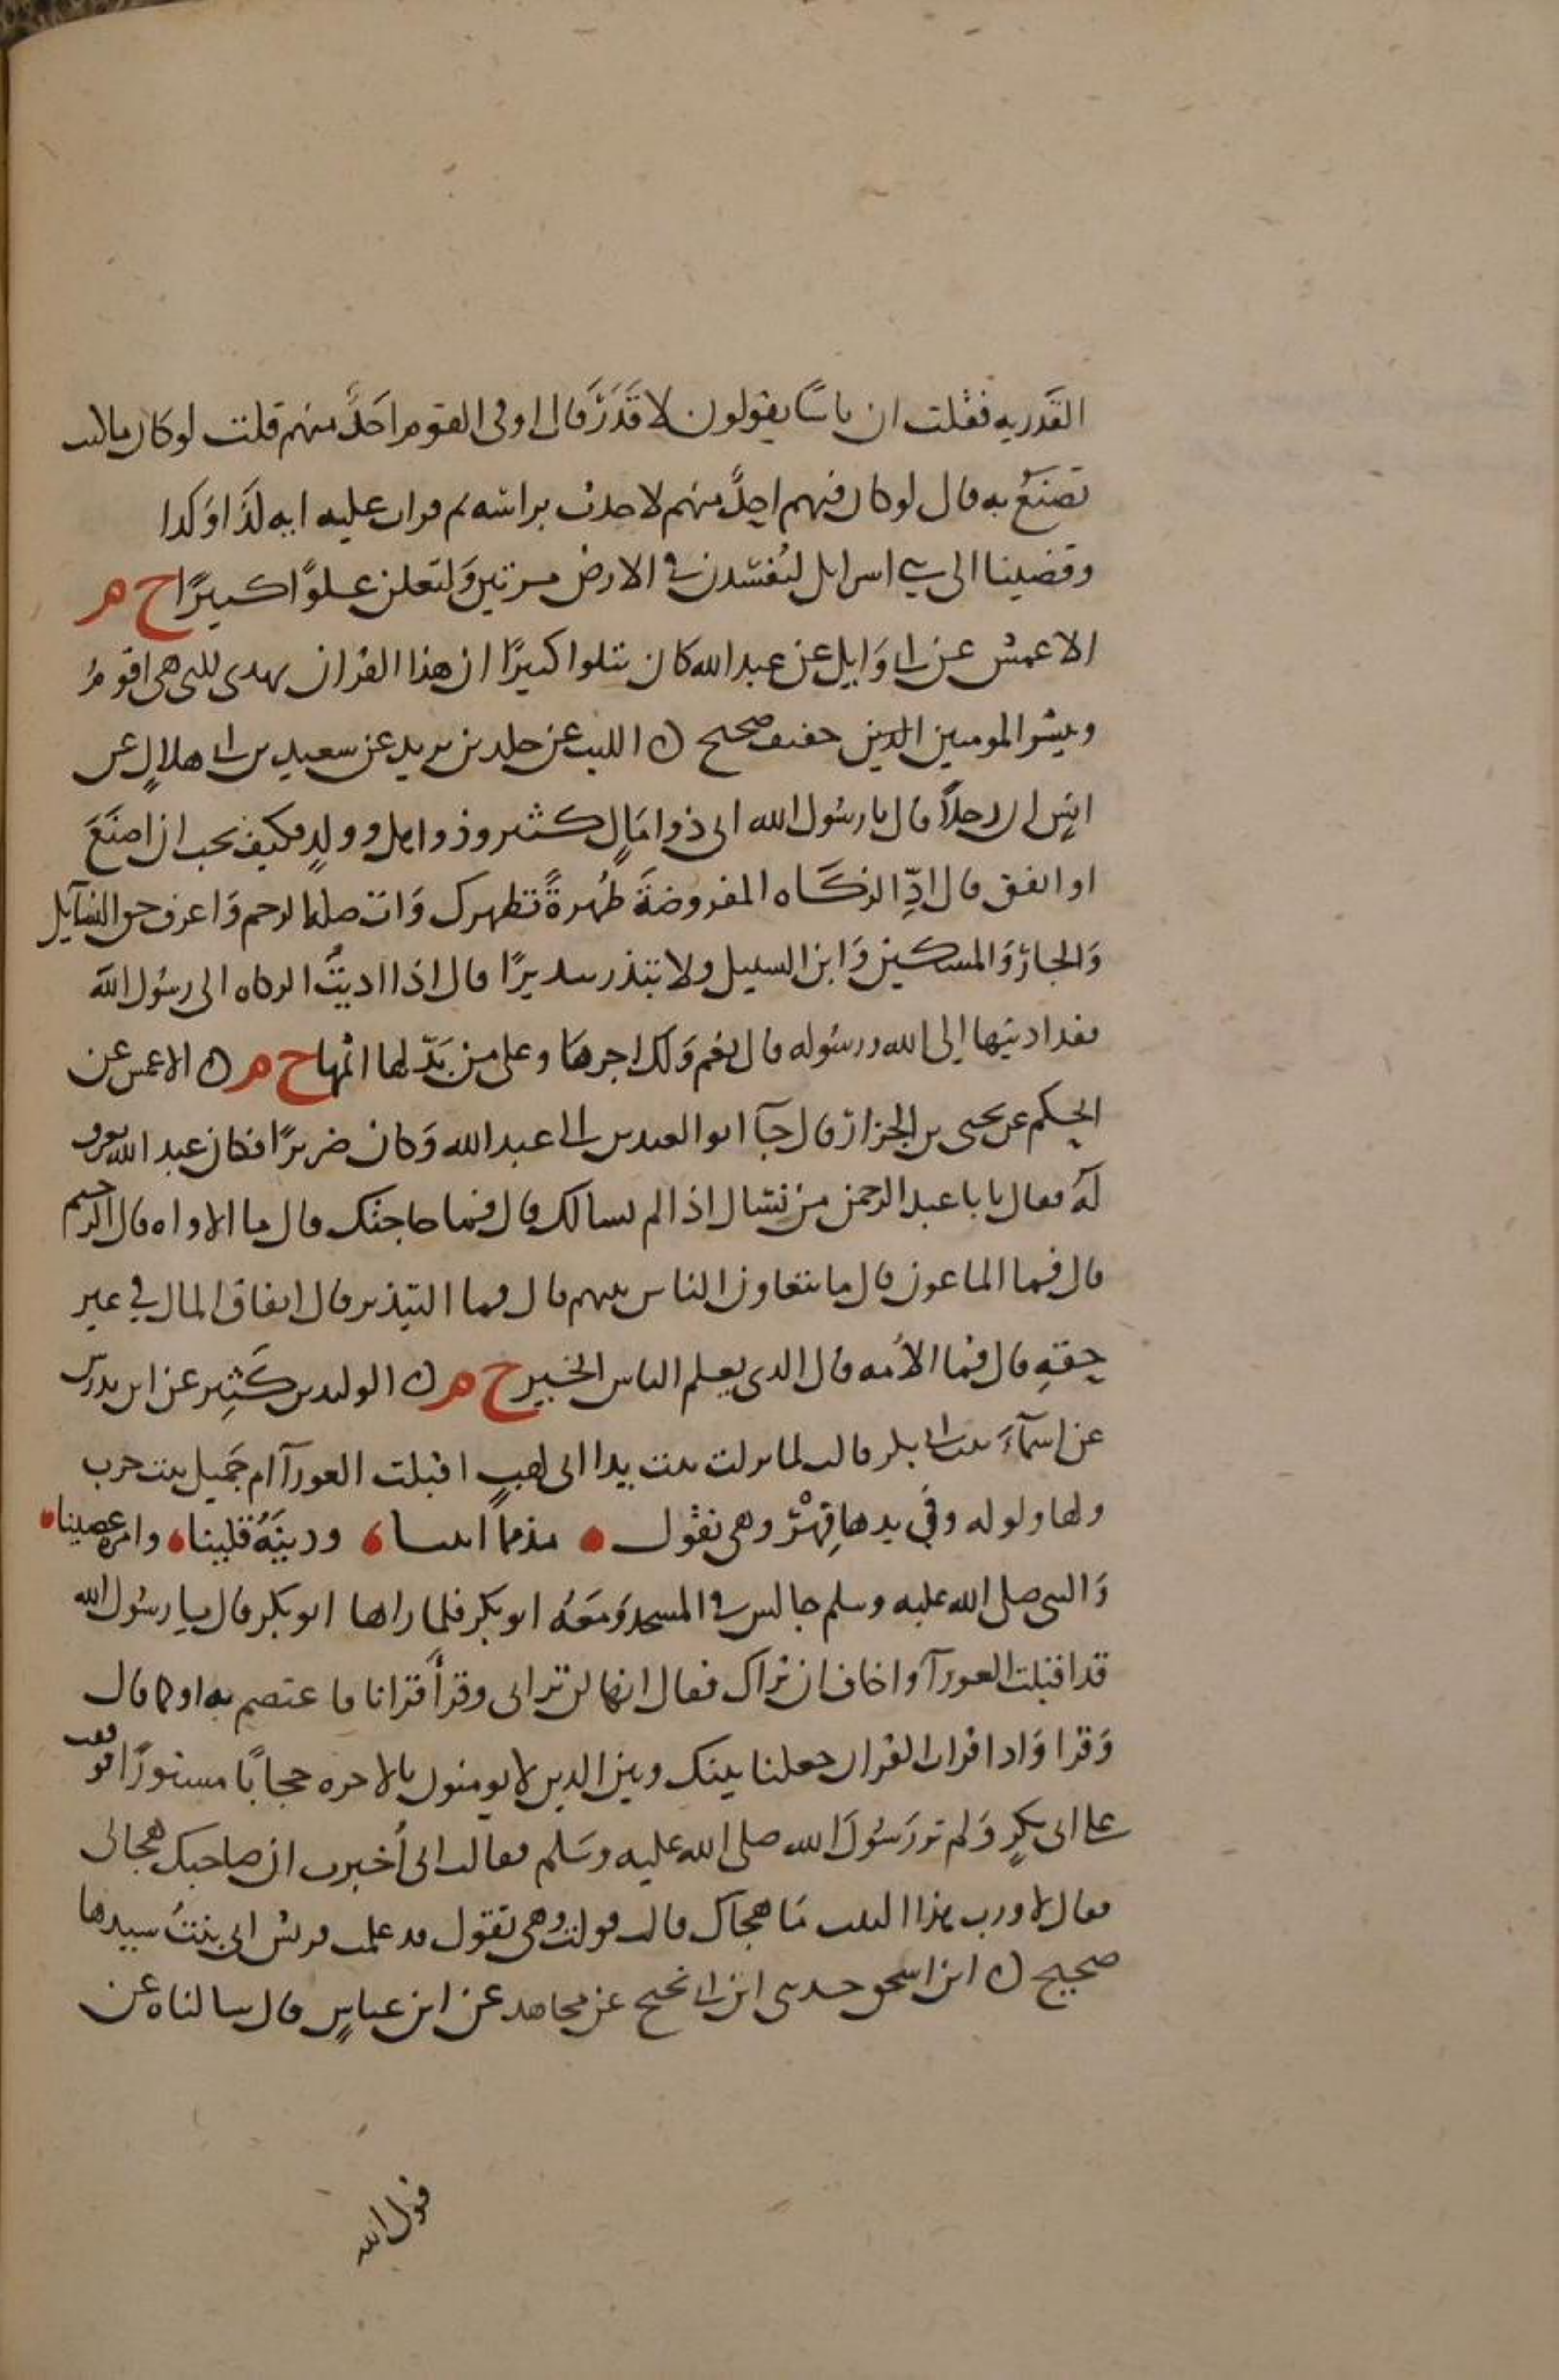 القَدَريه فقلت ان ناسًا يقولون لا قَدَرَ قال اوفى القوم احَدٌ منهم قلت لو كان ما كنت
تصنَعُ به قال لو كان فيهم احدٌ منهم لاخذت براسه ثم قرات عليه ايه كذا وكذا
وقضينا الى بني اسرايل لتُفسدن في الارض مرتين وَلتعلن علوًا كبيرًا خ م
الاعمش عن ابي وَايل عن عبد الله كان يتلوا كثيرًا ان هذا القران يهدى للتى هى اقومُ
ويبشر المومنين الذين خفيف صحيح ن الليث عن خلد بن يزيد عن سعيد بن ابي هلالٍ عن
انسٍ ان رجلاً قال يا رسُول الله انى ذوا مَالٍ كثير وذوا اهل وولدٍ فكيف يجب ان اصنَعَ
او انفق قال ادِّ الزكاه المفروضةَ طُهرةً تطهرك وَات صله الرحم وَاعرف حق السَّايل
وَالجارَ وَالمسكين وَابن السبيل ولا تبذر تبديرًا قال اذا اديتُ الزكاه الى رسُول الله
فقد اديتها إلى الله ورسُوله قال نعم وَلك اجرهَا وعلى من بَدّلها اثمها خ م ن الاعمش عن
الحكم عن يحيى بن الجزار قال جآ ابو العبيدين الى عبد الله وَكان ضريرًا فكان عبد الله يعرف
لَهُ فقال يا با عبد الرحمن من نسَال اذا لم نسالك قال فما حاجتك قال ما الاواه قال الرحيم
قال فما الماعون قال ما يتعاون الناس بينهم قال فما التبذير قال انفاق المال في غير
حقهِ قال فما الأمه قال الدى يعلم الناس الخير خ م ن الوليد بن كَثِير عن ابن تدرس
عن اسمآءَ بنت ابي بكر قالت لما نزلت تبت يدا ابى لهبٍ اقبلت العورآ ام جَميل بنت حرب
ولها ولوله وفي يدها فِهْرٌ وهى تقول مذممًا ابينا ودينَهُ قلينا وامره عصينا
وَالنبى صلى الله عليه وسلم جالس في المسجد وَمعَهُ ابو بكر فلما راها ابو بكر قال يا رسُول الله
قد اقبلت العورآ وانا اخاف ان تراك فقال انها لن ترانى وقرأ قرانا فاعتصم به او كما قال
وَقرا وَاذا قرات القران جعلنا بينك وبين الذين لا يومنون بالاخره حجابًا مستورًا فوقفت
على ابى بكرٍ وَلم تر رَسُولَ الله صلى الله عليه وسَلم فقالت انى أُخبرت ان صاحبك هجانى
فقال لا ورب هذا البيت مَا هجاك قال فولت وهى تقول قد علمت قريش انى بنتُ سيدها
صحيح ن ابن اسحق حدثنى ابن ابي نجيح عن مجاهد عن ابن عباسٍ قال سالناه عن
قول الله